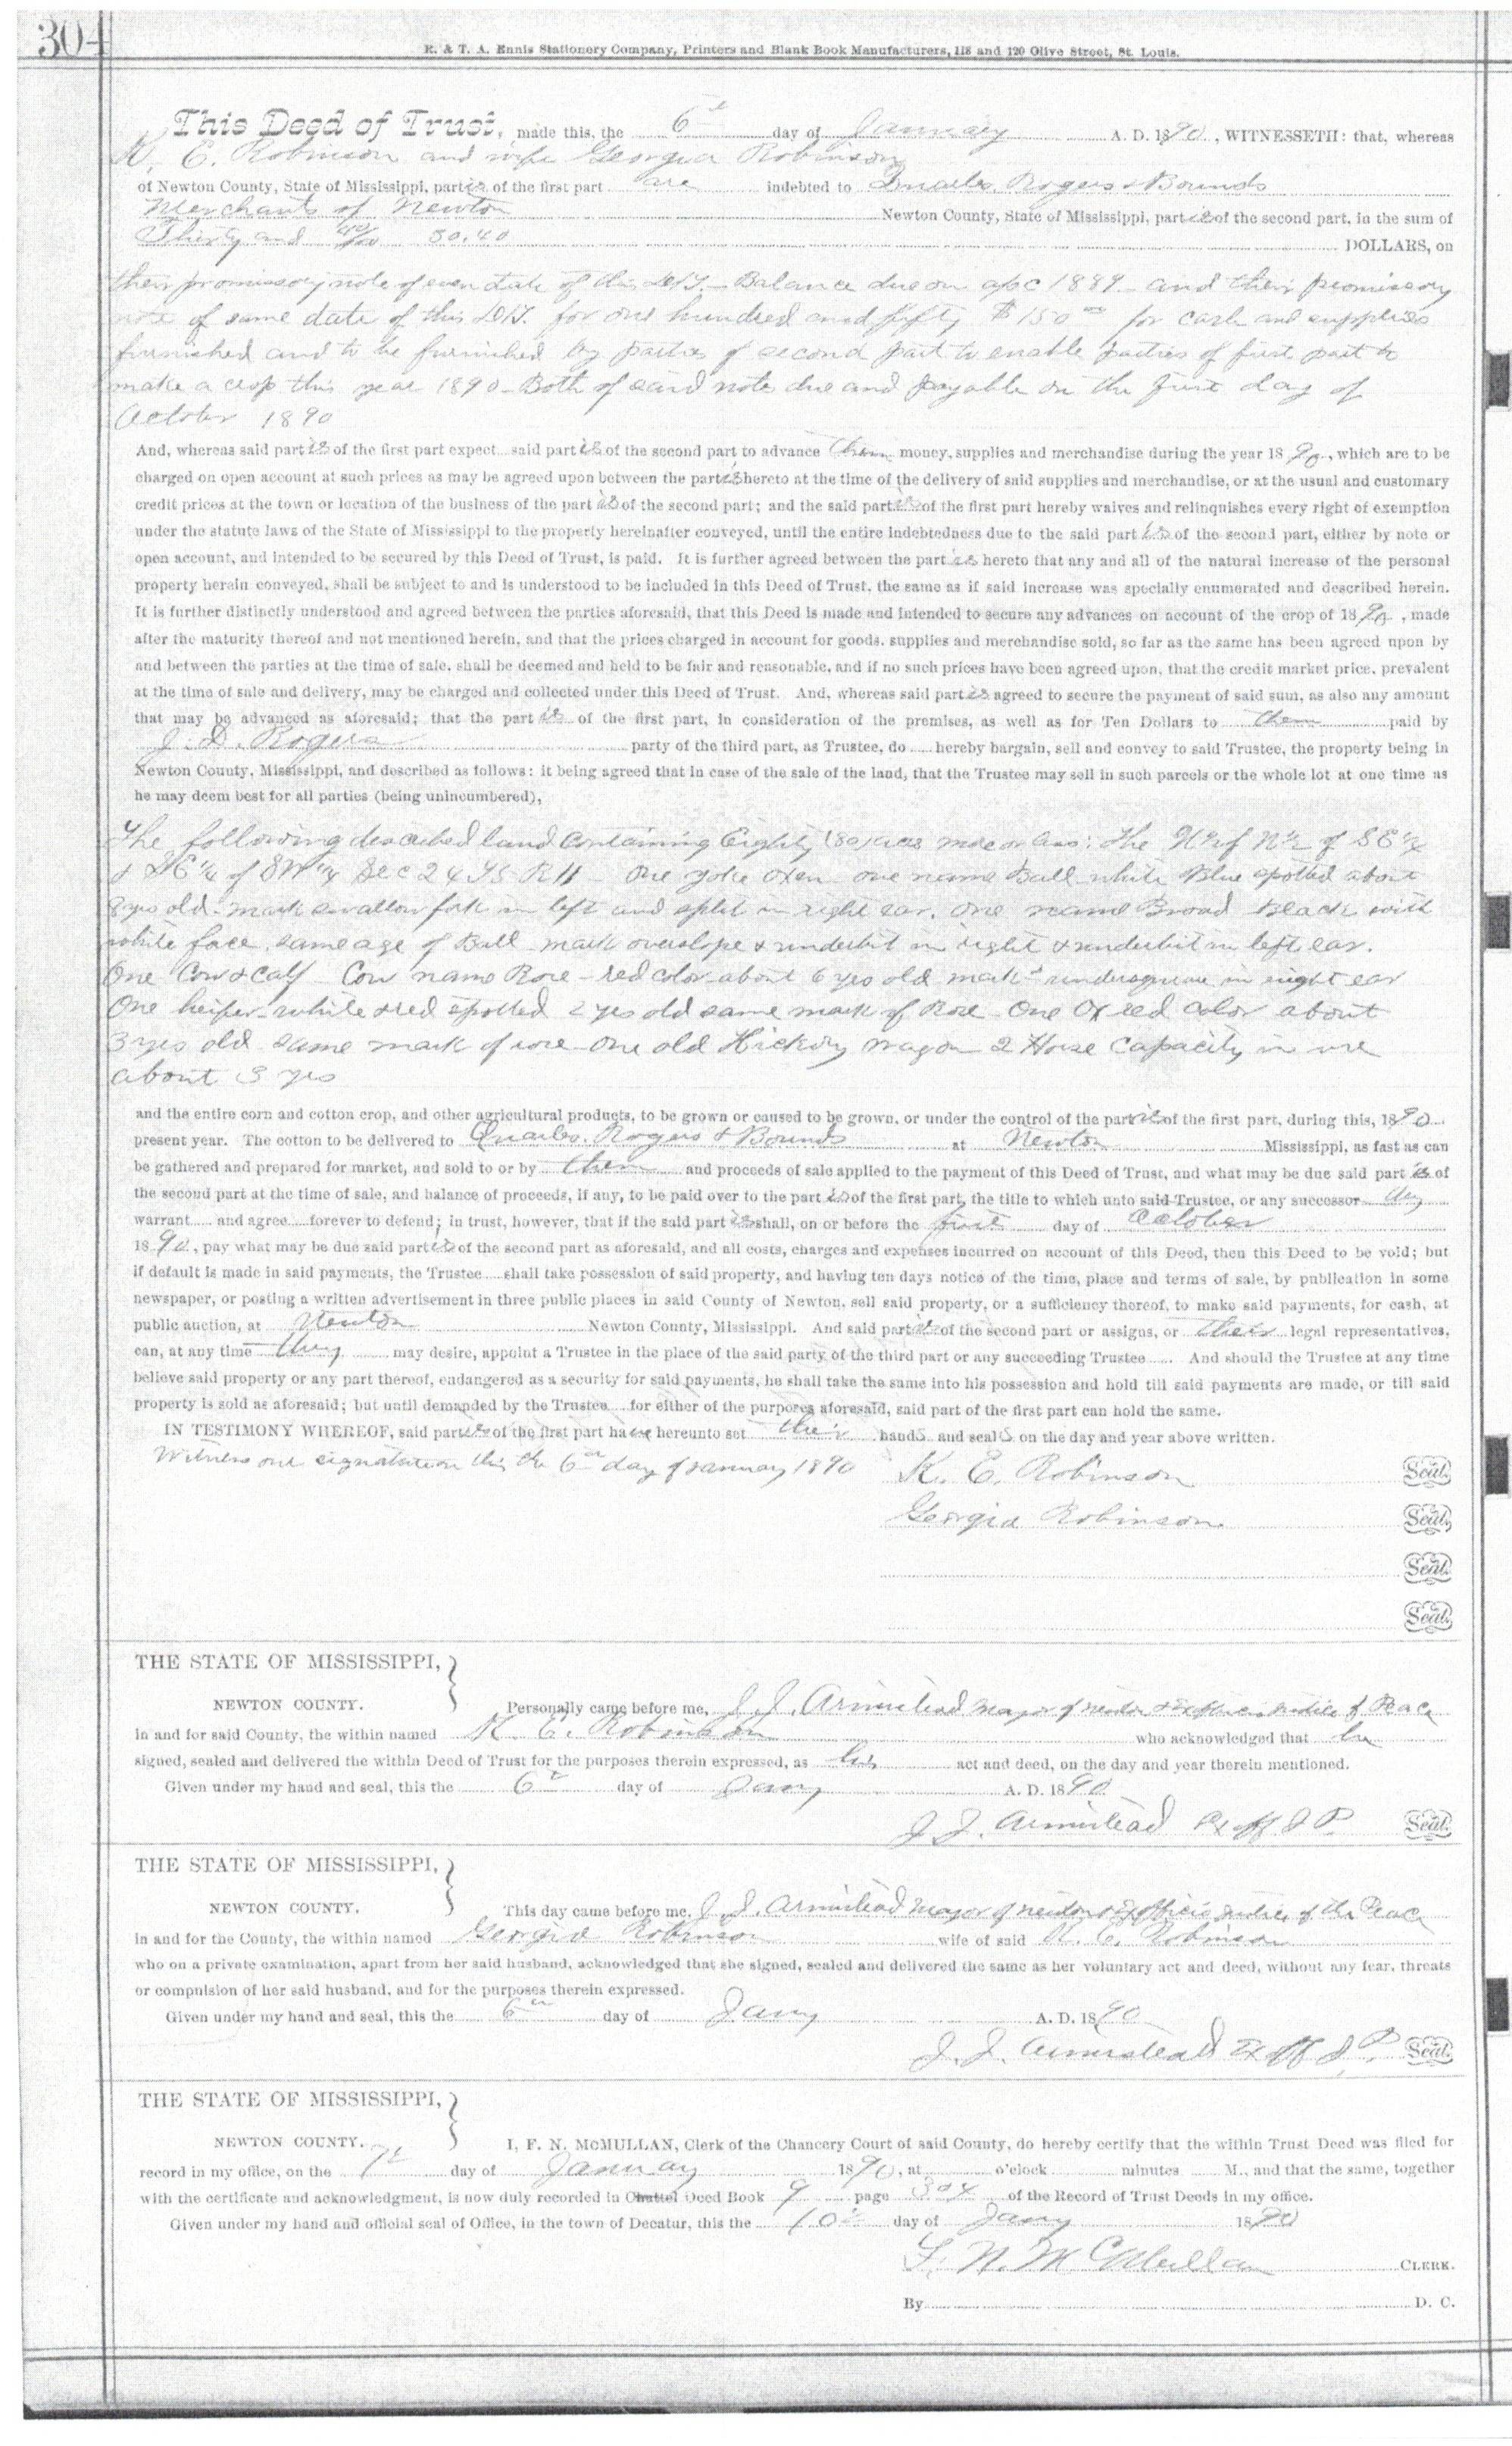 304
R. & T. A. Ennis Stationery Company, Printers and Blank Book Manufacturers, 118 and 120 Olive Street, St. Louis.
This Deed of Trust, made this, the 6th day of January A. D. 1890, WITNESSETH: that, whereas
K. E. Robinson and wife Georgia Robinson
of Newton County, State of Mississippi, parties of the first part are indebted to Quarles, Rogers & Bounds
Merchants of Newton Newton County, State of Mississippi, parties of the second part, in the sum of
Thirty and 40/100 30.40 DOLLARS, on
their promissory note of even date of this D/T. - Balance due on a/c 1889 - and their promissory
note of same date of this D/T. for one hundred and fifty $150 00 for cash and supplies
furnished and to be furnished by parties of second part to enable parties of first part to
make a crop this year 1890 - Both of said notes due and payable on the first day of
October 1890
And, whereas said parties of the first part expect said parties of the second part to advance them money, supplies and merchandise during the year 1890, which are to be
charged on open account at such prices as may be agreed upon between the parties hereto at the time of the delivery of said supplies and merchandise, or at the usual and customary
credit prices at the town or location of the business of the parties of the second part; and the said parties of the first part hereby waives and relinquishes every right of exemption
under the statute laws of the State of Mississippi to the property hereinafter conveyed, until the entire indebtedness due to the said parties of the second part, either by note or
open account, and intended to be secured by this Deed of Trust, is paid. It is further agreed between the parties hereto that any and all of the natural increase of the personal
property herein conveyed, shall be subject to and is understood to be included in this Deed of Trust, the same as if said increase was specially enumerated and described herein.
It is further distinctly understood and agreed between the parties aforesaid, that this Deed is made and intended to secure any advances on account of the crop of 1890, made
after the maturity thereof and not mentioned herein, and that the prices charged in account for goods, supplies and merchandise sold, so far as the same has been agreed upon by
and between the parties at the time of sale, shall be deemed and held to be fair and reasonable, and if no such prices have been agreed upon, that the credit market price, prevalent
at the time of sale and delivery, may be charged and collected under this Deed of Trust. And, whereas said parties agreed to secure the payment of said sum, as also any amount
that may be advanced as aforesaid; that the parties of the first part, in consideration of the premises, as well as for Ten Dollars to them paid by
J. D. Rogers party of the third part, as Trustee, do hereby bargain, sell and convey to said Trustee, the property being in
Newton County, Mississippi, and described as follows: it being agreed that in case of the sale of the land, that the Trustee may sell in such parcels or the whole lot at one time as
he may deem best for all parties (being unincumbered),
The following described land containing Eighty (80) acres more or less: The N½ of SE¼
& of SW¼ Sec 24 T5 R11 - One yoke Oxen - one name Ball - white Blue spotted about
8 yrs old - mark swallow fork in left and split in right ear. One name Broad Black with
white face, same age of Ball - mark overslope & underbit in right & underbit in left ear.
One Cow & calf - Cow name Rose - red color about 6 yrs old mark undersquare in right ear
One heifer - white & red spotted 2 yrs old same mark of Rose - One Ox red color about
3 yrs old same mark of - One old Hickory wagon 2 Horse capacity in use
about 3 yrs
and the entire corn and cotton crop, and other agricultural products, to be grown or caused to be grown, or under the control of the parties of the first part, during this, 1890
present year. The cotton to be delivered to Quarles, Rogers & Bounds at Newton Mississippi, as fast as can
be gathered and prepared for market, and sold to or by them and proceeds of sale applied to the payment of this Deed of Trust, and what may be due said parties of
the second part at the time of sale, and balance of proceeds, if any, to be paid over to the parties of the first part, the title to which unto said Trustee, or any successor they
warrant and agree forever to defend; in trust, however, that if the said parties shall, on or before the first day of October
1890, pay what may be due said parties of the second part as aforesaid, and all costs, charges and expenses incurred on account of this Deed, then this Deed to be void; but
if default is made in said payments, the Trustee shall take possession of said property, and having ten days notice of the time, place and terms of sale, by publication in some
newspaper, or posting a written advertisement in three public places in said County of Newton, sell said property, or a sufficiency thereof, to make said payments, for cash, at
public auction, at Newton Newton County, Mississippi. And said parties of the second part or assigns, or their legal representatives,
can, at any time they may desire, appoint a Trustee in the place of the said party of the third part or any succeeding Trustee And should the Trustee at any time
believe said property or any part thereof, endangered as a security for said payments, he shall take the same into his possession and hold till said payments are made, or till said
property is sold as aforesaid; but until demanded by the Trustee for either of the purposes aforesaid, said part of the first part can hold the same.
IN TESTIMONY WHEREOF, said parties of the first part have hereunto set their hands and seals on the day and year above written.
Witness our signatures this the 6th day of January 1890 K. E. Robinson Seal.
Georgia Robinson Seal.
Seal.
Seal.
THE STATE OF MISSISSIPPI,
NEWTON COUNTY. Personally came before me, J. J. Armistead Mayor of Newton & Exofficio Justice of Peace
in and for said County, the within named K. E. Robinson who acknowledged that he
signed, sealed and delivered the within Deed of Trust for the purposes therein expressed, as his act and deed, on the day and year therein mentioned.
Given under my hand and seal, this the 6th day of Jany A. D. 1890
J. J. Armistead Ex off J P. Seal.
THE STATE OF MISSISSIPPI,
NEWTON COUNTY. This day came before me, J. J. Armistead Mayor of Newton & Exofficio Justice of the Peace
in and for the County, the within named Georgia Robinson wife of said K. E. Robinson
who on a private examination, apart from her said husband, acknowledged that she signed, sealed and delivered the same as her voluntary act and deed, without any fear, threats
or compulsion of her said husband, and for the purposes therein expressed.
Given under my hand and seal, this the 6th day of Jany A. D. 1890
J. J. Armistead Ex off J. P. Seal.
THE STATE OF MISSISSIPPI,
NEWTON COUNTY. I, F. N. McMULLAN, Clerk of the Chancery Court of said County, do hereby certify that the within Trust Deed was filed for
record in my office, on the 7th day of January 1890, at o'clock minutes M., and that the same, together
with the certificate and acknowledgment, is now duly recorded in Chattel Deed Book 9 page 304 of the Record of Trust Deeds in my office.
Given under my hand and official seal of Office, in the town of Decatur, this the 10th day of Jany 1890
F. N. McMullan CLERK.
By D. C.